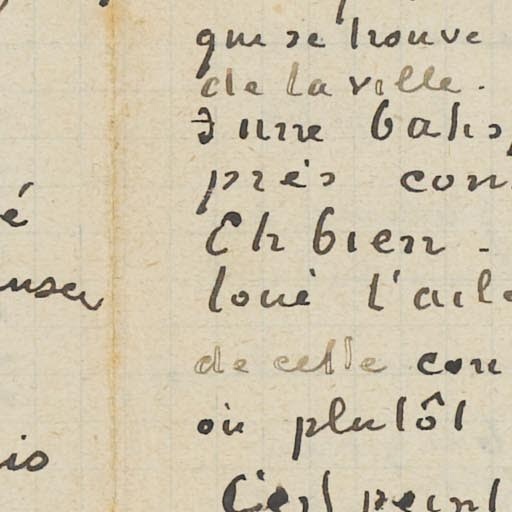 é
user
is
que se trouve
de la ville.
d'une bahs
près con
Eh bien -
loué l'aile
de celle con
où plutôt
C'est peint